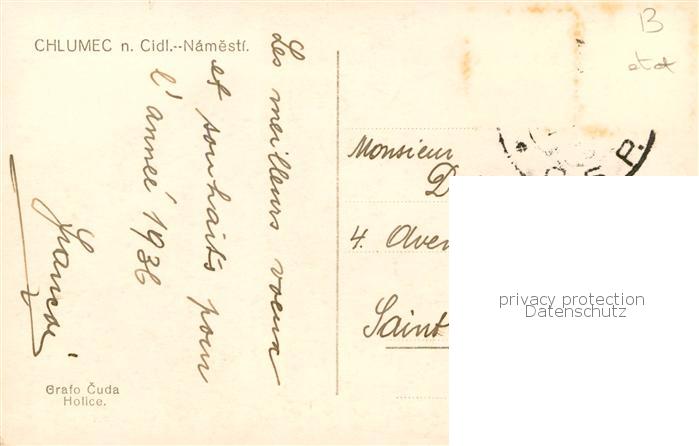 CHLUMEC n. Cidl.--Náměstí.
Les meilleurs voeux
et souhaits pour
l'anneé 1936
Grafo Čuda
Holice.
B
etat
Monsieur
D
4. Aven
Saint
P.
privacy protection
Datenschutz